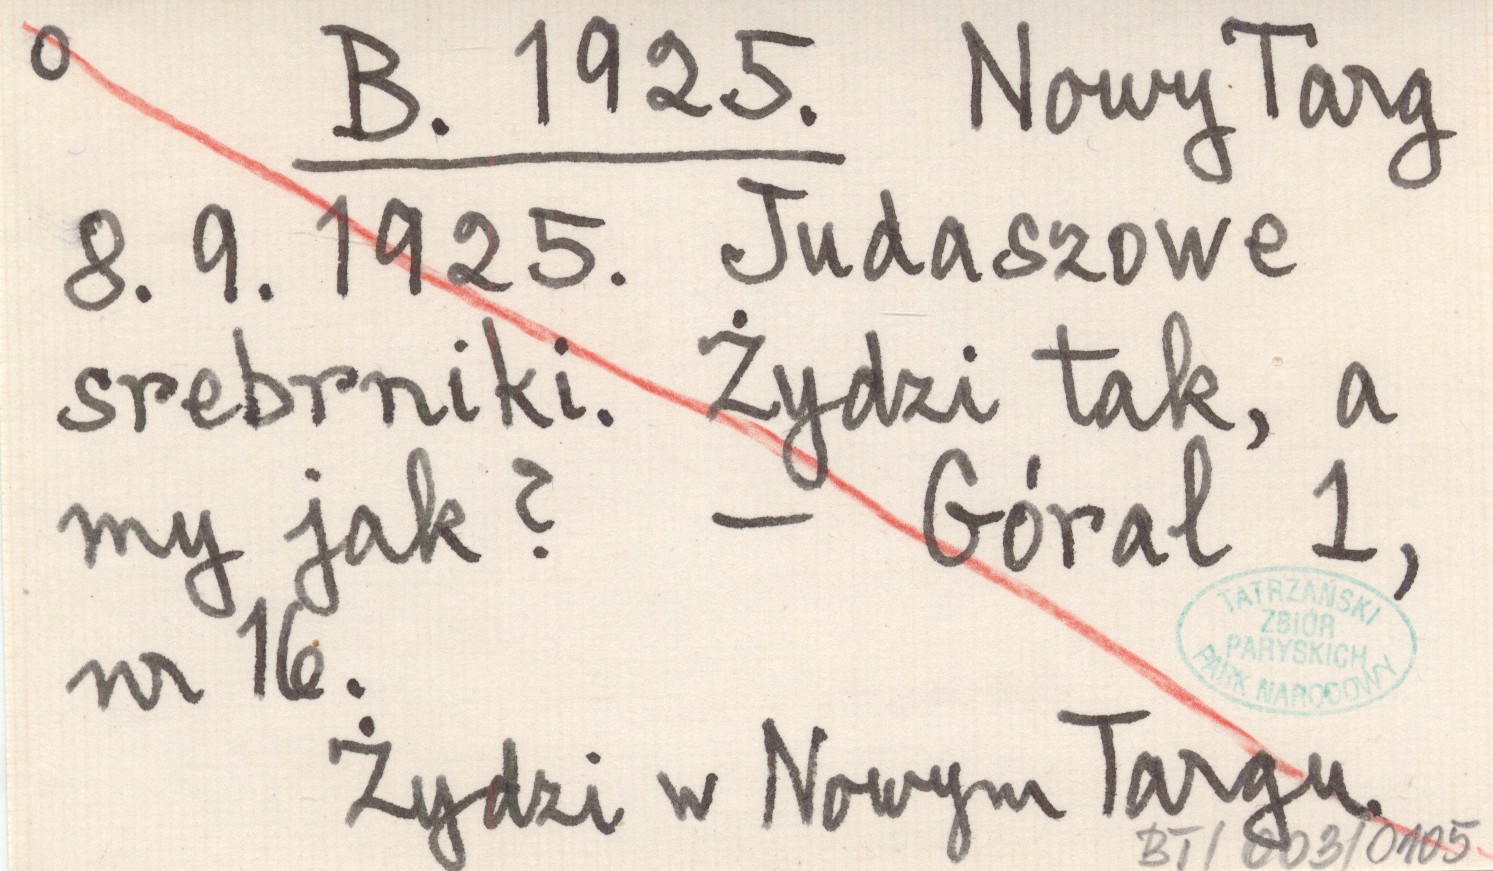 o B. 1925. Nowy Targ
8. 9. 1925. Judaszowe
srebrniki. Żydzi tak, a
my jak? — Góral 1,
nr 16.
TATRZAŃSKI
ZBIÓR
PARYSKICH
PARK NARODOWY
Żydzi w Nowym Targu.
BT/003/0105